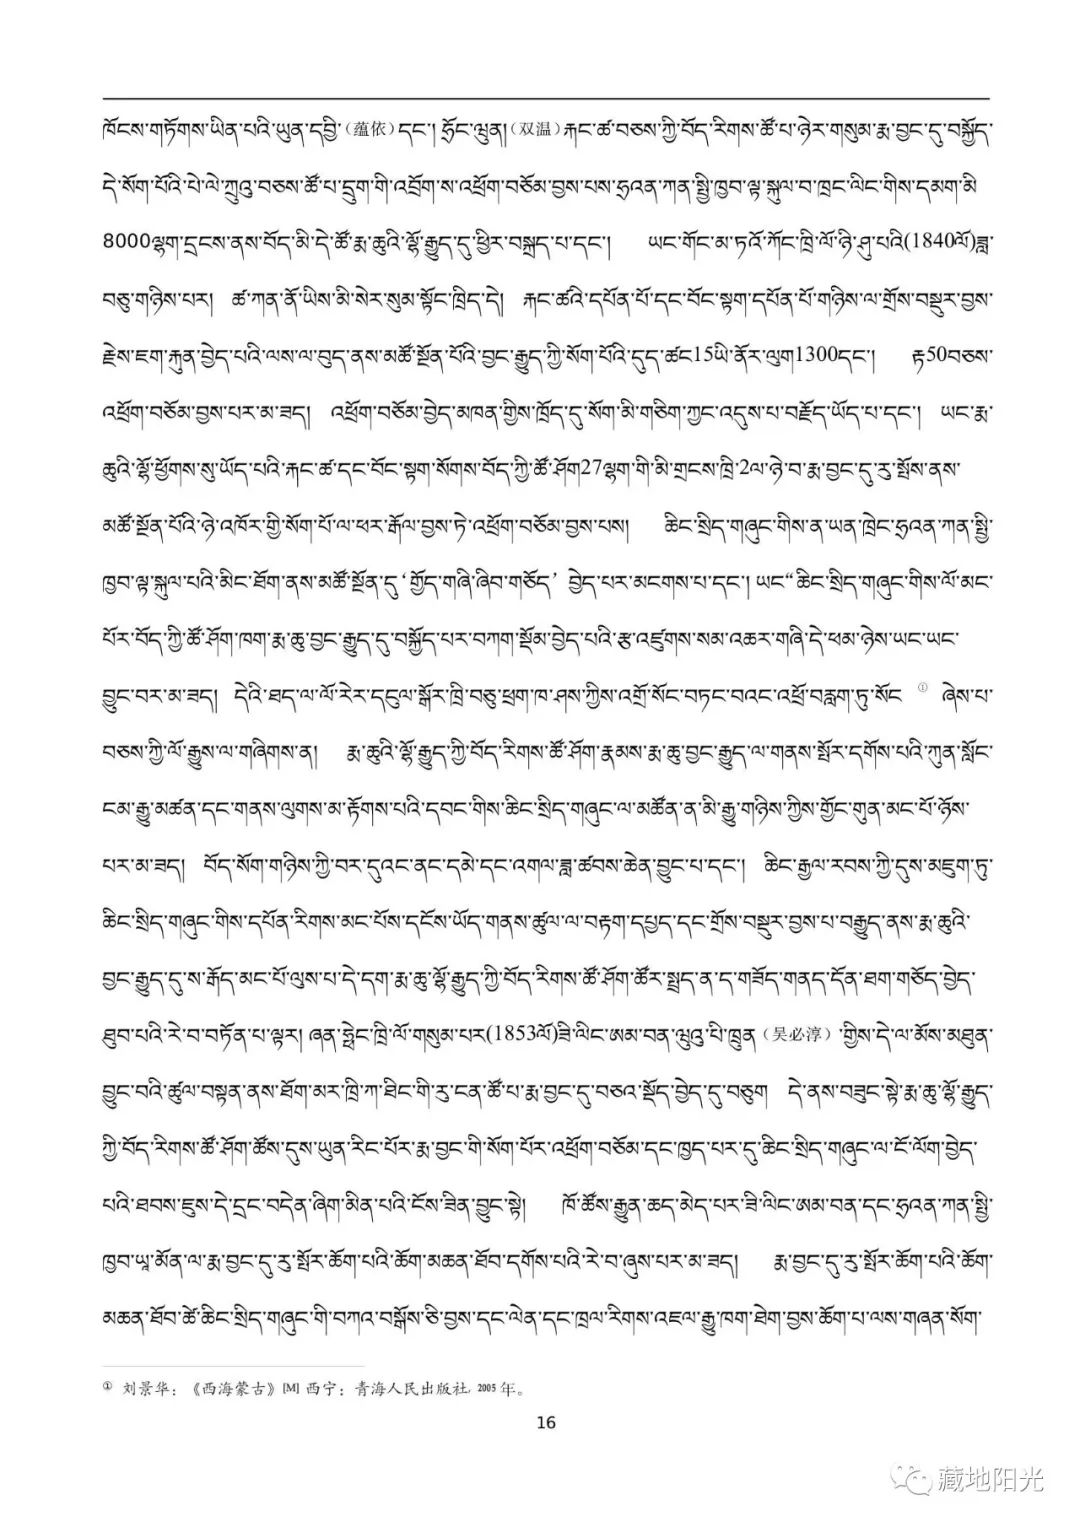 ཁོངས་གཏོགས་ཡིན་པའི་ཡུན་དབྱི་(蕴依)དང་། ཧྲོང་ཝུན།(双温)རྐང་ཚ་བཅས་ཀྱི་བོད་རིགས་ཚོ་པ་ཉེར་གསུམ་རྨ་བྱང་དུ་བསྐྱོད་
དེ་སོག་པོའི་པེ་ལེ་ཀྲུའུ་བཅས་ཚོ་པ་དྲུག་གི་འབྲོག་ས་འཕྲོག་བཅོམ་བྱས་པས་ཧྲའན་ཀན་སྤྱི་ཁྱབ་ལྟ་སྐུལ་བ་ཁྲང་ལིང་གིས་དམག་མི
8000ལྷག་དྲངས་ནས་བོད་མི་དེ་ཚོ་རྨ་ཆུའི་ལྷོ་རྒྱུད་དུ་ཕྱིར་བསྐྲད་པ་དང་། ཡང་གོང་མ་ཏའོ་ཀོང་ཁྲི་ལོ་ཉི་ཤུ་པའི(1840ལོ)ཟླ་
བཅུ་གཉིས་པར། ཚ་ཀན་ནོ་ཡིས་མི་སེར་སུམ་སྟོང་ཁྲིད་དེ། རྐང་ཚའི་དཔོན་པོ་དང་བོང་སྟག་དཔོན་པོ་གཉིས་ལ་གྲོས་བསྡུར་བྱས་
རྗེས་ཇག་རྐུན་བྱེད་པའི་ལས་ལ་བུད་ནས་མཚོ་སྔོན་པོའི་བྱང་རྒྱུད་ཀྱི་སོག་པོའི་དུད་ཚང15ཡི་ནོར་ལུག1300དང་། རྟ50བཅས་
འཕྲོག་བཅོམ་བྱས་པར་མ་ཟད། འཕྲོག་བཅོམ་བྱེད་མཁན་གྱིས་ཁྲོད་དུ་སོག་མི་གཅིག་ཀྱང་འདུས་པ་བརྗོད་ཡོད་པ་དང་། ཡང་རྨ་
ཆུའི་ལྷོ་ཕྱོགས་སུ་ཡོད་པའི་རྐང་ཚ་དང་བོང་སྟག་སོགས་བོད་ཀྱི་ཚོ་ཤོག27ལྷག་གི་མི་གྲངས་ཁྲི་2ལ་ཉེ་བ་རྨ་བྱང་དུ་རུ་སྤོས་ནས་
མཚོ་སྔོན་པོའི་ཉེ་འཁོར་གྱི་སོག་པོ་ལ་ཕར་རྒོལ་བྱས་ཏེ་འཕྲོག་བཅོམ་བྱས་པས། ཆིང་སྲིད་གཞུང་གིས་ན་ཡན་ཁྲེང་ཧྲའན་ཀན་སྤྱི་
ཁྱབ་ལྟ་སྐུལ་པའི་མིང་ཐོག་ནས་མཚོ་སྔོན་དུ‘གྱོད་གཞི་ཞིབ་གཅོད’ བྱེད་པར་མངགས་པ་དང་། ཡང“ཆིང་སྲིད་གཞུང་གིས་ལོ་མང་
པོར་བོད་ཀྱི་ཚོ་ཤོག་ཁག་རྨ་ཆུ་བྱང་རྒྱུད་དུ་བསྐྱོད་པར་བཀག་སྡོམ་བྱེད་པའི་རྩ་འཛུགས་སམ་འཆར་གཞི་དེ་ཕམ་ཉེས་ཡང་ཡང་
བྱུང་བར་མ་ཟད། དེའི་ཐད་ལ་ལོ་རེར་དངུལ་སྒོར་ཁྲི་བཅུ་ཕྲག་ཁ་ཤས་ཀྱིས་འགྲོ་སོང་བཏང་བའང་འཕྲོ་བརླག་ཏུ་སོང ① ཞེས་པ་
བཅས་ཀྱི་ལོ་རྒྱུས་ལ་གཞིགས་ན། རྨ་ཆུའི་ལྷོ་རྒྱུད་ཀྱི་བོད་རིགས་ཚོ་ཤོག་རྣམས་རྨ་ཆུ་བྱང་རྒྱུད་ལ་གནས་སྤོར་དགོས་པའི་ཀུན་སློང་
ངམ་རྒྱུ་མཚན་དང་གནས་ལུགས་མ་རྟོགས་པའི་དབང་གིས་ཆིང་སྲིད་གཞུང་ལ་མཚོན་ན་མི་རྒྱུ་གཉིས་ཀྱིས་གྱོང་གུན་མང་པོ་ཉོས་
པར་མ་ཟད། བོད་སོག་གཉིས་ཀྱི་བར་དུའང་ནང་དམེ་དང་འགལ་ཟླ་ཚབས་ཆེན་བྱུང་པ་དང་། ཆིང་རྒྱལ་རབས་ཀྱི་དུས་མཇུག་ཏུ་
ཆིང་སྲིད་གཞུང་གིས་དཔོན་རིགས་མང་པོས་དངོས་ཡོད་གནས་ཚུལ་ལ་བརྟག་དཔྱད་དང་གྲོས་བསྡུར་བྱས་པ་བརྒྱུད་ནས་རྨ་ཆུའི་
བྱང་རྒྱུད་དུ་ས་རྒོད་མང་པོ་ལུས་པ་དེ་དག་རྨ་ཆུ་ལྷོ་རྒྱུད་ཀྱི་བོད་རིགས་ཚོ་ཤོག་ཚོར་སྤྲད་ན་ད་གཟོད་གནད་དོན་ཐག་གཅོད་བྱེད་
ཐུབ་པའི་རེ་བ་བཏོན་པ་ལྟར། ཞན་ཧྥེང་ཁྲི་ལོ་གསུམ་པར(1853ལོ)ཟི་ལིང་ཨམ་བན་ཝུའུ་པི་ཁྲུན(吴必淳)གྱིས་དེ་ལ་མོས་མཐུན་
བྱུང་བའི་ཚུལ་བསྟན་ནས་ཐོག་མར་ཁྲི་ཀ་ཐིང་གི་རུ་ངན་ཚོ་པ་རྨ་བྱང་དུ་བཅའ་སྡོད་བྱེད་དུ་བཅུག དེ་ནས་བཟུང་སྟེ་རྨ་ཆུ་ལྷོ་རྒྱུད་
ཀྱི་བོད་རིགས་ཚོ་ཤོག་ཚོས་དུས་ཡུན་རིང་པོར་རྨ་བྱང་གི་སོག་པོར་འཕྲོག་བཅོམ་དང་ཁྱད་པར་དུ་ཆིང་སྲིད་གཞུང་ལ་ངོ་ལོག་བྱེད་
པའི་ཐབས་ཇུས་དེ་དྲང་བདེན་ཞིག་མིན་པའི་ངོས་ཟིན་བྱུང་སྟེ། ཁོ་ཚོས་རྒྱུན་ཆད་མེད་པར་ཟི་ལིང་ཨམ་བན་དང་ཧྲའན་ཀན་སྤྱི་
ཁྱབ་ཡཱ་མོན་ལ་རྨ་བྱང་དུ་རུ་སྤོར་ཆོག་པའི་ཆོག་མཆན་ཐོབ་དགོས་པའི་རེ་བ་ཞུས་པར་མ་ཟད། རྨ་བྱང་དུ་རུ་སྤོར་ཆོག་པའི་ཆོག་
མཆན་ཐོབ་ཚེ་ཆིང་སྲིད་གཞུང་གི་བཀའ་བསྒོས་ཅི་བྱས་དང་ལེན་དང་ཁྲལ་རིགས་འཇལ་རྒྱུ་ཁག་ཐེག་བྱས་ཆོག་པ་ལས་གཞན་སོག་
① 刘景华：《西海蒙古》[M] 西宁：青海人民出版社, 2005 年。
16
藏地阳光